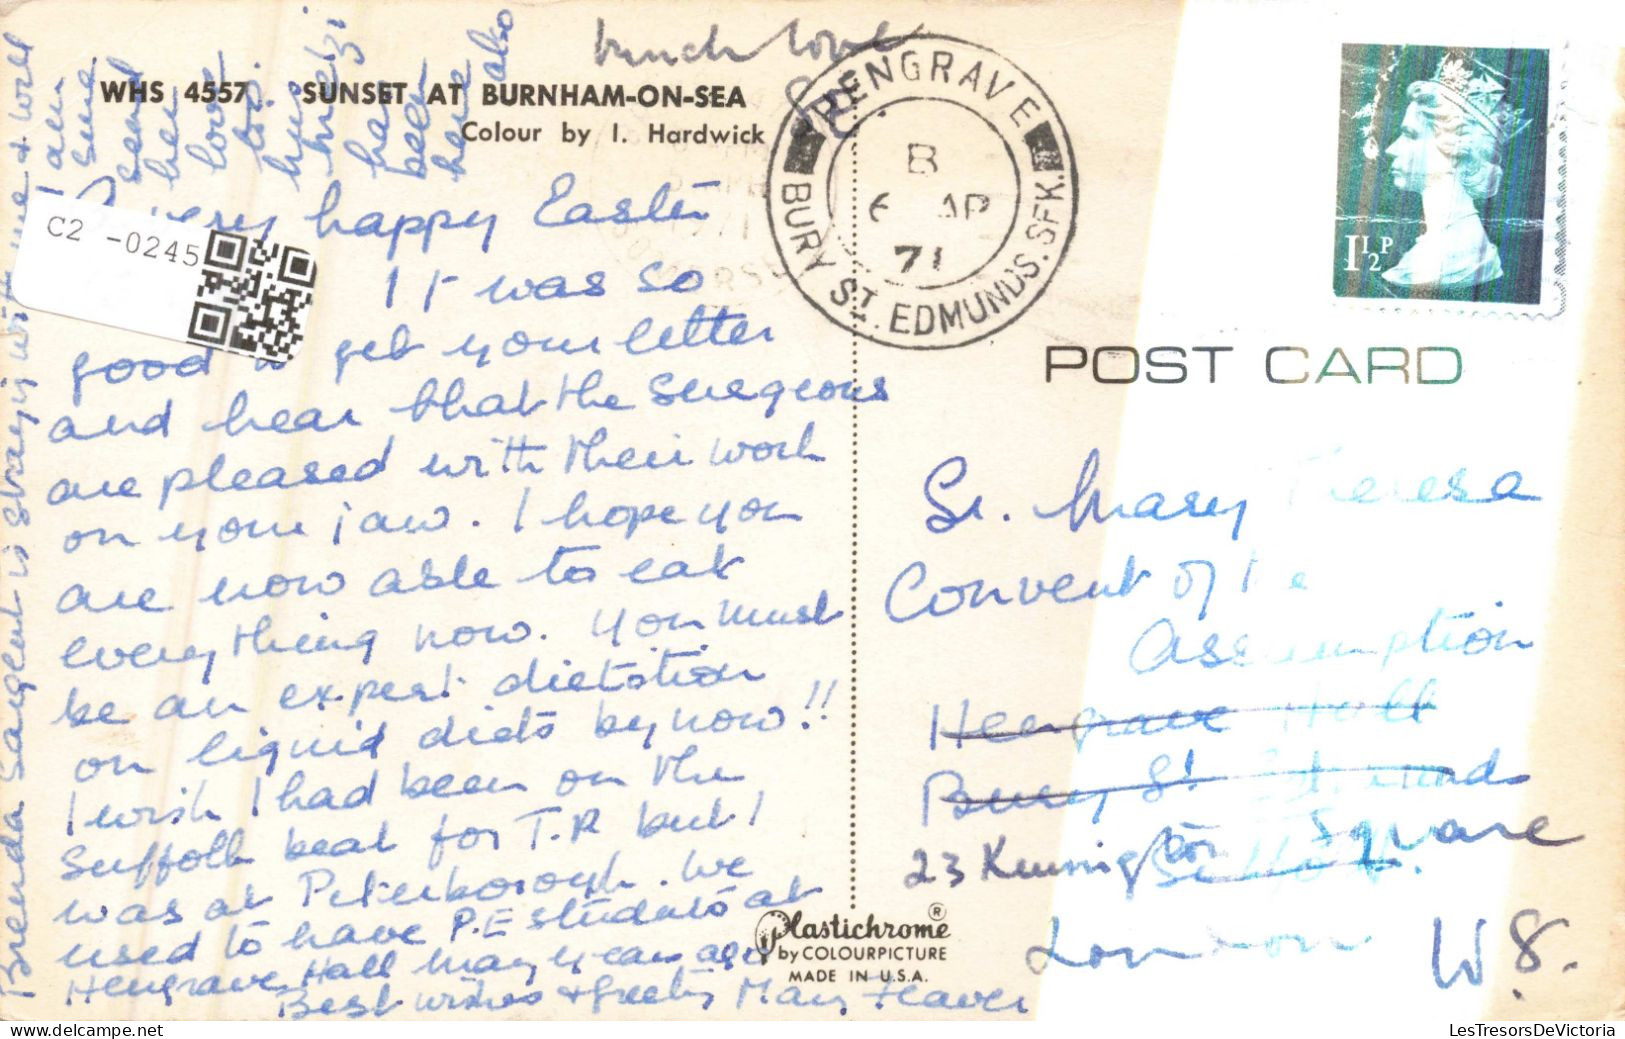 much love
WHS 4557 SUNSET AT BURNHAM-ON-SEA
Colour by I. Hardwick
A very happy Easter
It was so
good to get your letter
and hear that the surgeons
are pleased with their work
on your jaw. I hope you
are now able to eat
everything now. You must
be an expert dietition
on liquid diets by now!!
I wish I had been on the
Suffolk beat for T.R but I
was at Peterborough. We
used to have P.E students at
Hengrave Hall many years ago
Best wishes & greetings Mary Heaver
Brenda Sargent is staying with me & will
I am
sure
send
her
love
too.
has
been
here also
C2 -0245
HENGRAVE
B
6 AP
71
BURY ST. EDMUNDS. SFK.
1½P
POST CARD
Sr. Mary Theresa
Convent of the
Assumption
Hengrave Hall
Bury St. Edmunds
Suffolk.
23 Kensington Square
London W 8.
Plastichrome®
by COLOURPICTURE
MADE IN U.S.A.
LesTresorsDeVictoria